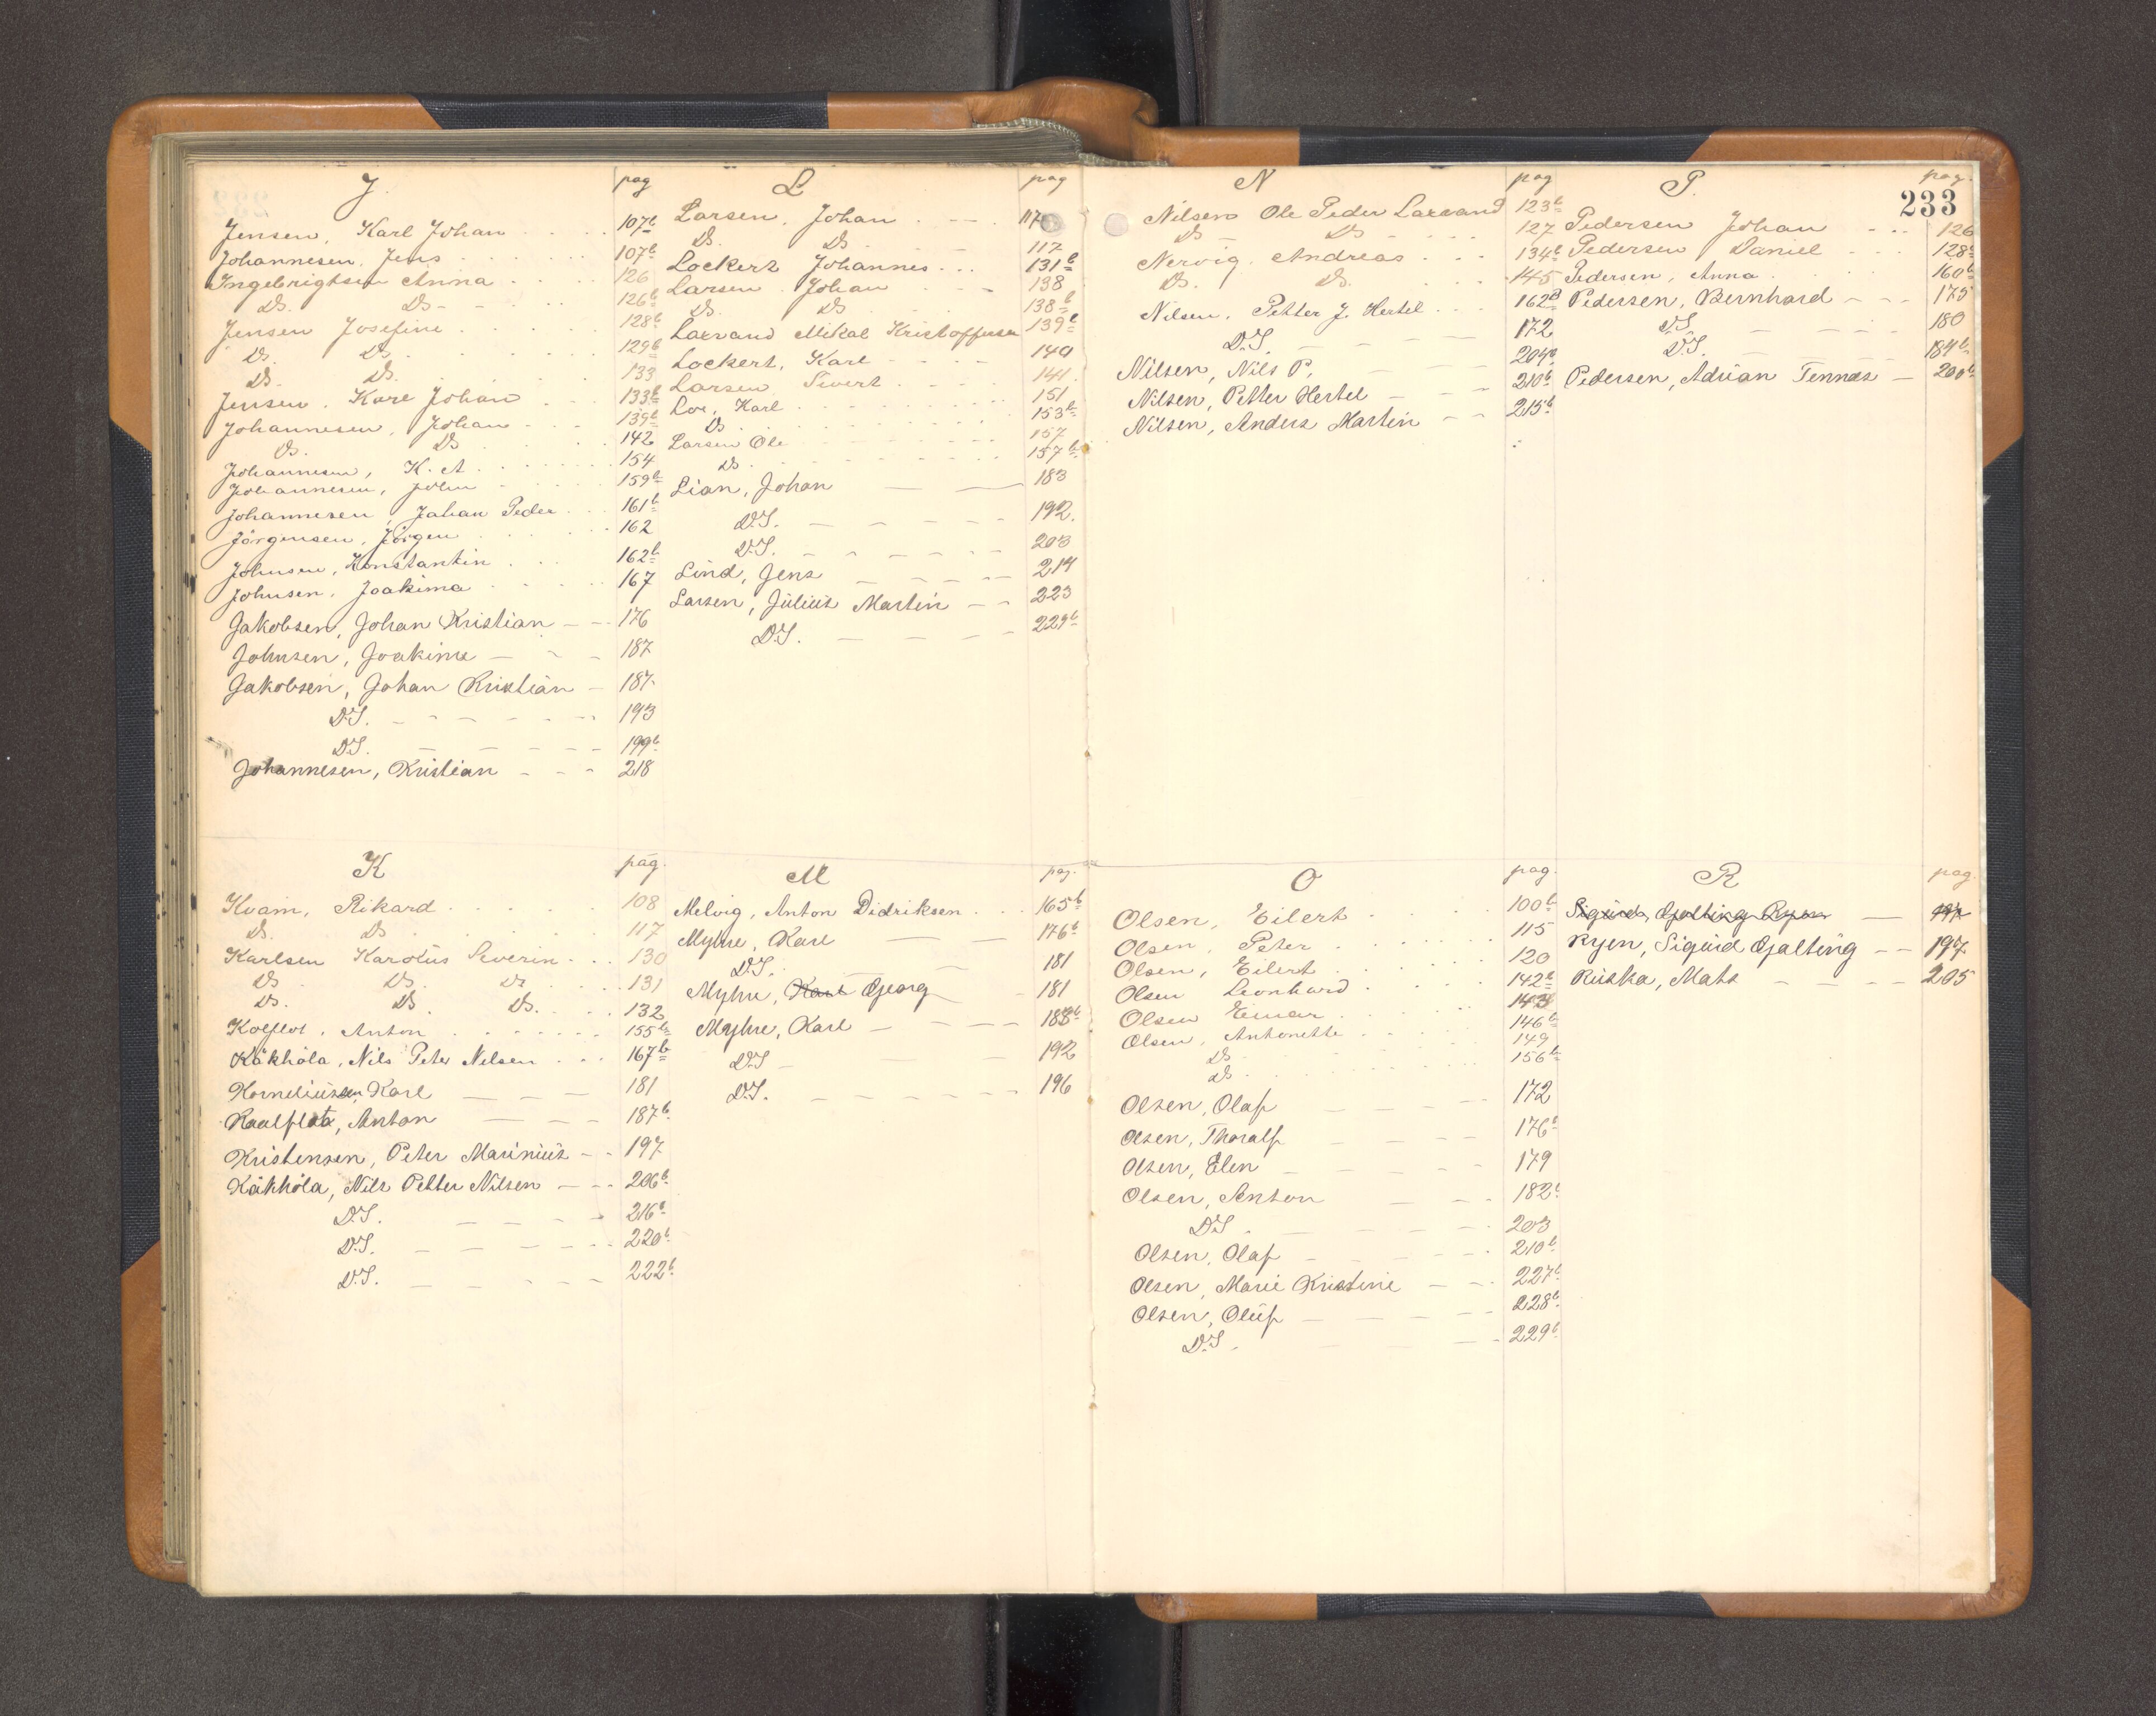 J. pag
Jensen, Karl Johan 107b
Johannesen, Jens 107b
Ingebrigtsen Anna 126
Do. Do. 126b
Jensen Josefine 128b
Do. Do. 129b
Do. Do. 133
Jensen, Karl Johan 133b
Johannesen, Johan 139b
Do. Do. 142
Johannesen, K. A. 154
Johannesen, John 159b
Johannesen, Johan Peder 161b
Jörgensen, Jörgen 162
Johnsen, Konstantin 162b
Johnsen, Joakima 167
Jakobsen, Johan Kristian 176
Johnsen, Joakima 187
Jakobsen, Johan Kristian 187
D.S. 193
D.S. 199b
Johannesen, Kristian 218
K pag.
Kvam, Rikard 108
Do. Do. 117
Karlsen Karolus Severin 130
Do. Do. Do. 131
Do. Do. Do. 132
Kolflot, Anton 155b
Kåkhola, Nils Peter Nilsen 167b
Korneliussen, Karl 181
Kaalflot, Anton 187b
Kristensen, Peter Marinius 197
Kåkhola, Nils Petter Nilsen 206b
D.S. 216b
D.S. 220b
D.S. 222b
L pag
Larsen, Johan 117
Do. Do. 112
Lockert Johannes 131b
Larsen Johan 138
Do. Do. 138b
Larvand Mikal Kristoffersen 139b
Lockert, Karl 140
Larsen Sivert 141
Loe, Karl 151
Do. 153b
Larsen Ole 157
Do. 157b
Lian, Johan 183
D.S. 192
D.S. 203
Lind, Jens 214
Larsen, Julius Martin 223
D.S. 229b
M pag.
Melvig, Anton Didriksen 165b
Myhre, Karl 176b
D.S. 181
Myhre, Karl Georg 181
Myhre, Karl 188b
D.S. 192
D.S. 196
N pag
Nilsen Ole Peder Larvand 123b
Do Do 127
Nervig, Andreas 134b
Do. Do. 145
Nilsen, Petter J. Hertel 162b
D.S. 172
Nilsen, Nils P. 204b
Nilsen, Petter Hertel 210b
Nilsen, Anders Martin 215b
O pag.
Olsen, Eilert 100b
Olsen, Peter 115
Olsen, Eilert 120
Olsen Leonhard 142b
Olsen Einar 143
Olsen, Antonette 146b
Do 149
Do. 156b
Olsen, Olaf 172
Olsen, Thoralf 176b
Olsen, Elen 179
Olsen, Anton 182b
D.S. 203
Olsen, Olaf 210b
Olsen, Marie Kristine 227b
Olsen, Oluf 228b
D.S. 229b
P. pag.
233
Pedersen Johan 126
Pedersen Daniel 128b
Pedersen, Anna 160b
Pedersen, Bernhard 175
D.S. 180
D.S. 184b
Pedersen, Adrian Tennæs 200b
R pag.
Sigurd, Gjalting Ryen 197
Ryen, Sigurd Gjalting 197
Ruska, Mats 205